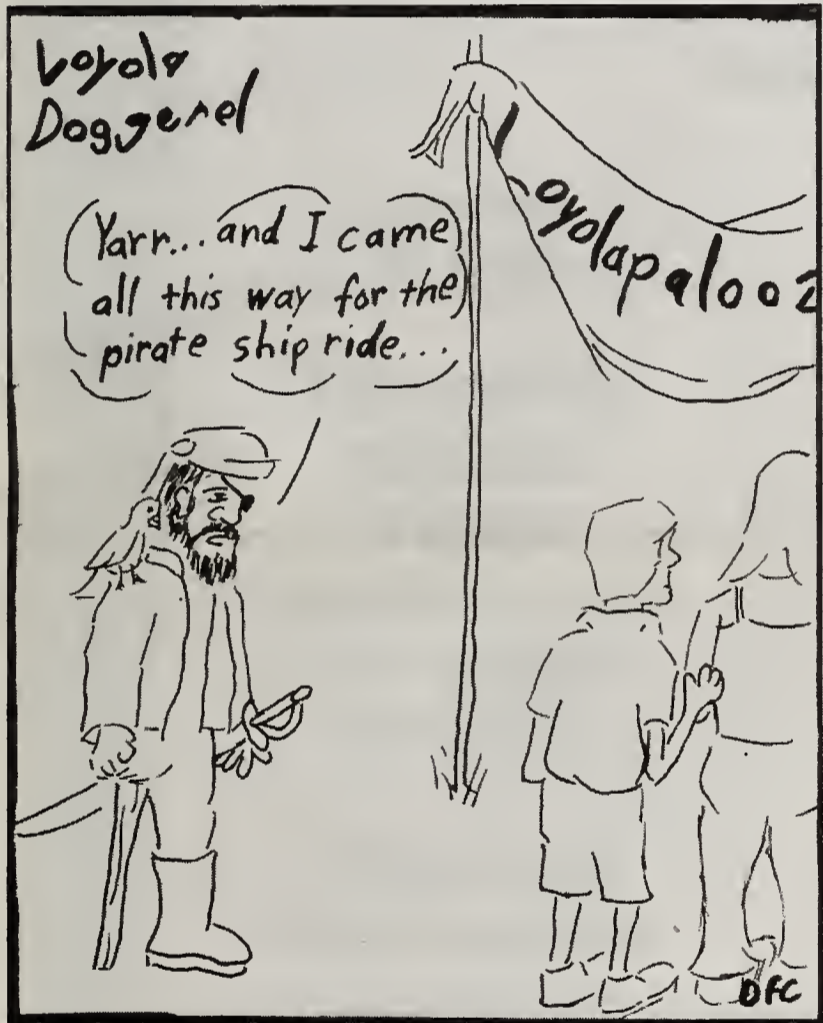 Loyola
Doggerel
Yarr... and I came
all this way for the
pirate ship ride...
Loyolapalooz
DFC